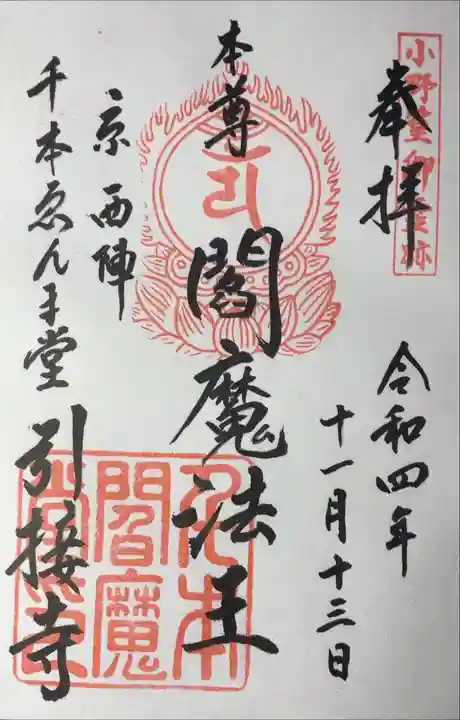 奉拝
令和四年
十一月十三日
本尊
閻魔法王
京西陣
千本ゑんま堂
引接寺
千本
閻魔
堂印